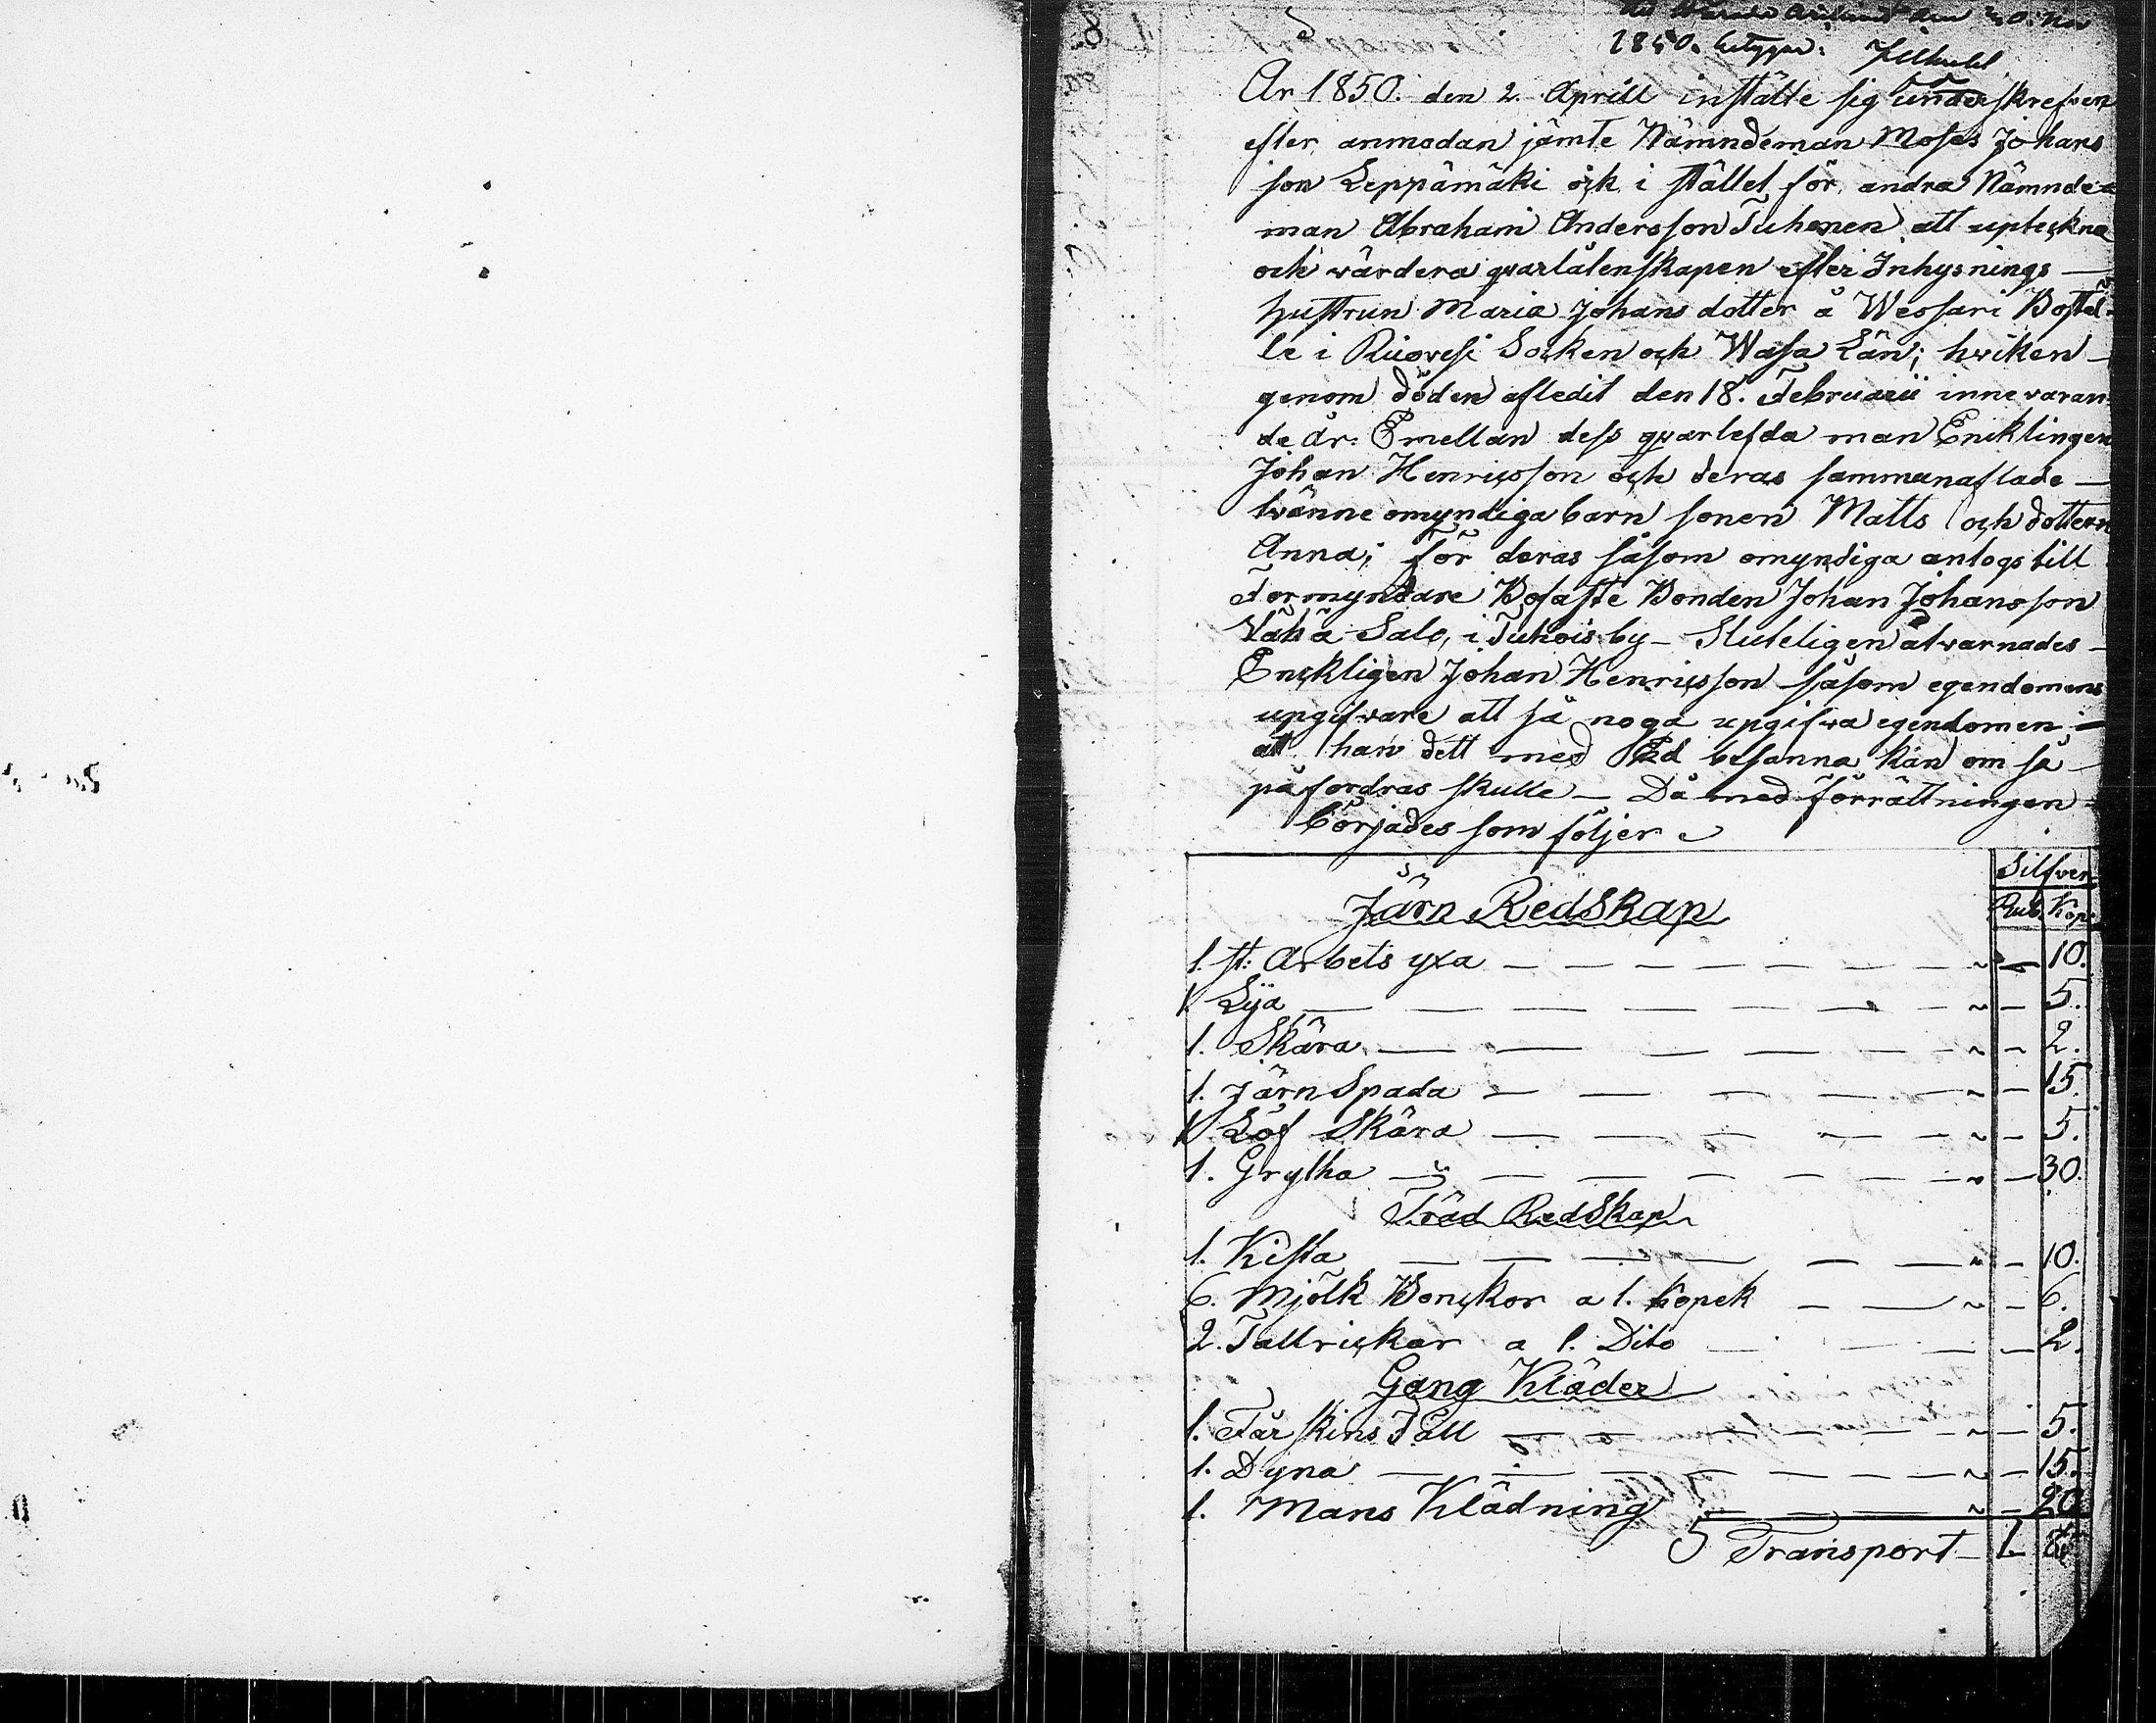 1850. betygar:
År 1850. den 2. Aprill instälte sig underskrefven
efter anmodan jämte Nämndeman Moses Johans
son Leppämäki ock i stället för andra Nämnde=
man Abraham Andersson Tuhonen att upteckna
och värdera qvarlåtenskapen efter Inhysnings —
hustrun Maria Johans dotter å Wessari Bostäl-
le i Ruovesi Socken och Wasa Län; hvilken —
genom döden afledit den 18. Februarii innevaran-
de År. Emellan dess qvarlefda man Encklingen
Johan Henricsson och deras sammanaflade —
tvänne omyndiga barn sonen Matts och dottern
Anna; för deras såsom omyndiga antogs till
Formyndare Bofaste Bonden Johan Johansson
Vähä Salo, i Tuhois by — Sluteligen åtvarnades —
Enckligen Johan Henricsson såsom egendomens
upgifvare att så noga upgifva egendomen; —
att han dett med Ed besanna kan om så —
påfordras skulle — Då med förrättningen
börjades som följer
Silfver
Järn Redskap Rub. Kop.
1. st: Arbets yxa — — — — — — — — " — 10.
1. Lija — — — — — — — — " — 5.
1. Skära — — — — — — " — 2.
1. Järn Spada — — — — — " — 15.
1. Löf Skära — — — — — " — 5.
1. Grytha — — — — — — — " — 30.
Träd Redskap
1. Kista — — — — — — " — 10.
6. Mjölk Bonckor a 1. kopek — — " — 6.
2. Tallrickar a 1. Dito — — — — 2.
Gång Kläder
1. Får skins Fäll — — — — — — " — 5.
1. Dyna — — — — — — — — " — 15.
1. Mans Klädning — — — — " — 20
Transport — 1